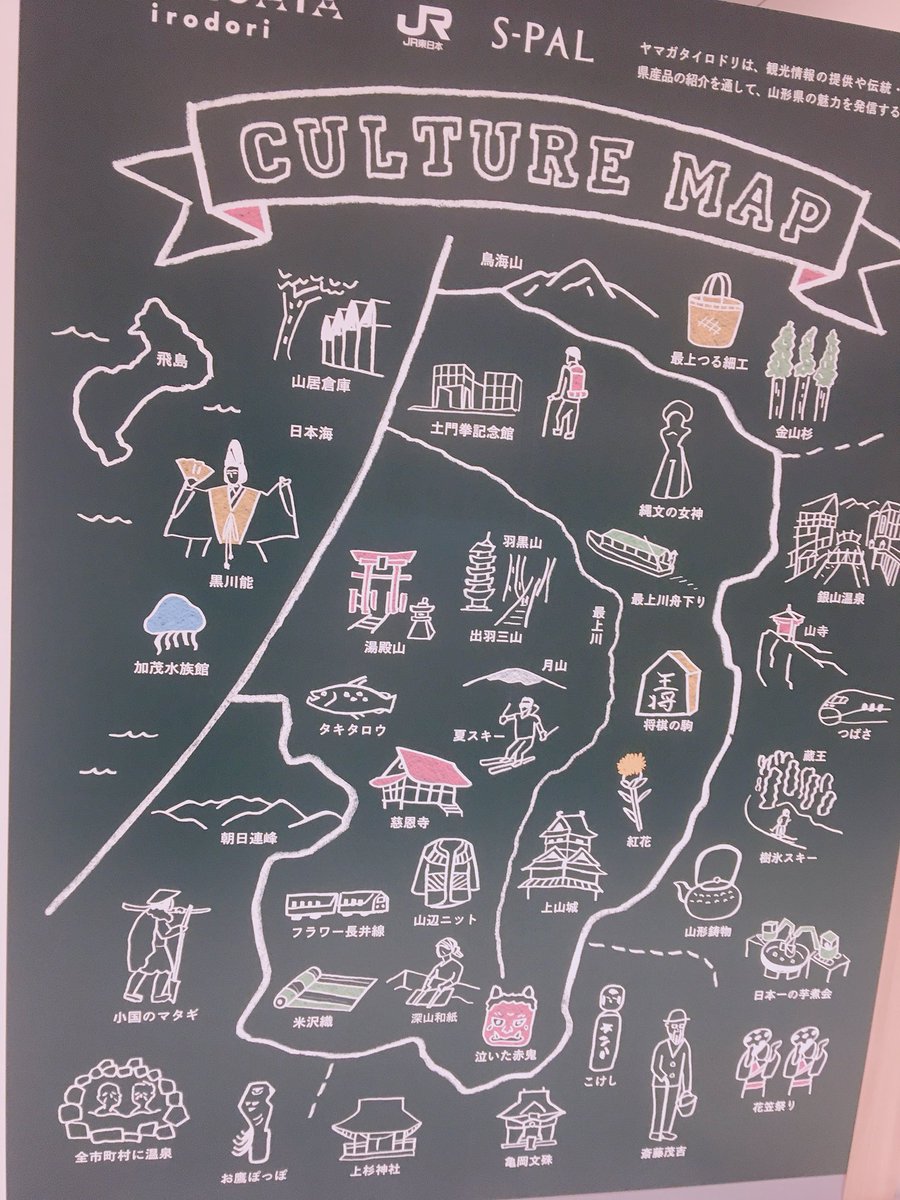 irodori
JR
JR東日本
S-PAL
ヤマガタイロドリは、観光情報の提供や伝統・
県産品の紹介を通して、山形県の魅力を発信する
CULTURE MAP
鳥海山
飛島
山居倉庫
最上つる細工
日本海
土門拳記念館
金山杉
縄文の女神
黒川能
羽黒山
最上川舟下り
銀山温泉
最上川
出羽三山
湯殿山
山寺
加茂水族館
月山
王将
将棋の駒
タキタロウ
夏スキー
つばさ
蔵王
慈恩寺
紅花
朝日連峰
樹氷スキー
上山城
フラワー長井線
山辺ニット
山形鋳物
日本一の芋煮会
小国のマタギ
米沢織
深山和紙
泣いた赤鬼
こけし
花笠祭り
全市町村に温泉
お鷹ぽっぽ
上杉神社
亀岡文殊
斎藤茂吉